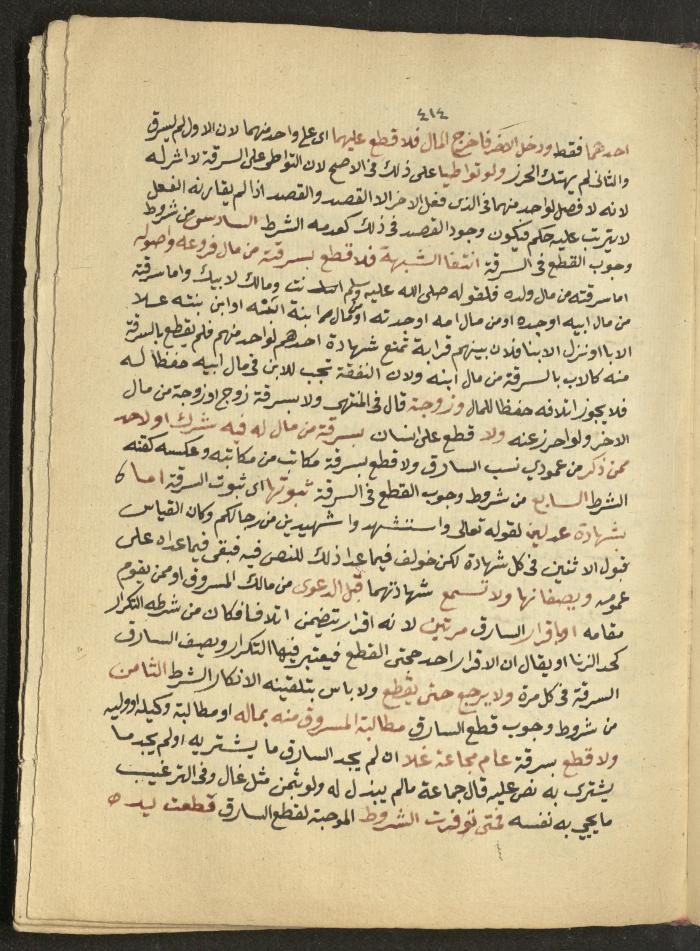 ٤١٤
احدهما فقط ودخل الاخر فاخرج المال فلا قطع عليهما اى على واحد منهما لان الاول لم يسرق
والثانى لم يهتك الحرز ولو تواطيا على ذلك فى الاصح لان التواطى على السرقة لا اثر له
لانه لا فعل لواحد منهما فى الذى فعل الاخر الا القصد والقصد اذا لم يقارنه الفعل
لا يترتب عليه حكم فيكون وجود القصد فى ذلك كعدمه الشرط السادس من شروط
وجوب القطع فى السرقة انتفا الشبهة فلا قطع بسرقته من مال فروعه واصوله
اما سرقته من مال ولده فلقوله صلى الله عليه وسلم انت ومالك لابيك واما سرقته
من مال ابيه او جده او من مال امه او جدته او من مال ابنة ابنته او ابن بنته علا
الابا او نزل الابنا فلان بينهم قرابة تمنع شهادة احدهم لواحد منهم فلم يقطع بالسرقة
منه كالاب بالسرقة من مال ابنه ولان النفقة تجب للابن فى مال ابيه حفظا له
فلا يجوز اتلافه حفظا للمال وزوجة قال فى المنتهى ولا بسرقة زوج او زوجة من مال
الاخر ولو احرز عنه ولا قطع على انسان بسرقة من مال له فيه شرك او لاحد
ممن ذكر من عمودي نسب السارق ولا قطع بسرقة مكاتب من مكاتبه وعكسه كقنه
الشرط السابع من شروط وجوب القطع فى السرقة ثبوتها اى ثبوت السرقة اما
بشهادة عدلين لقوله تعالى واستشهدوا شهيدين من رجالكم وكان القياس
قبول الاثنين فى كل شهادة لكن خولف فيما عدا ذلك للنص فيه فبقى فيما عداه على
عمومه ويصفانها ولا تسمع شهادتهما قبل الدعوى من مالك المسروق او ممن يقوم
مقامه او باقرار السارق مرتين لانه اقرار يتضمن اتلافا فكان من شرطه التكرار
كحد الزنا او يقال ان الاقرار احد حجتى القطع فيعتبر فيها التكرار ويصف السارق
السرقة فى كل مرة ولا يرجع حتى يقطع ولا باس بتلقينه الانكار الشرط الثامن
من شروط وجوب قطع السارق مطالبة المسروق منه بماله او مطالبة وكيله او وليه
ولا قطع بسرقة عام مجاعة غلا ان لم يجد السارق ما يشتريه او لم يجد ما
يشترى به نص عليه قال جماعة ما لم يبذل له ولو بثمن مثل غال وفى الترغيب
ما يحي به نفسه فمتى توفرت الشروط الموجبة لقطع السارق قطعت يده